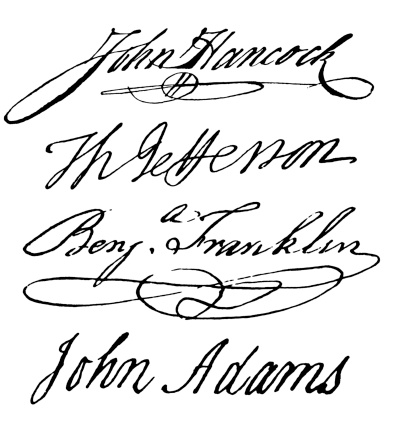 John Hancock
Th Jefferson
Benj.ª Franklin
John Adams